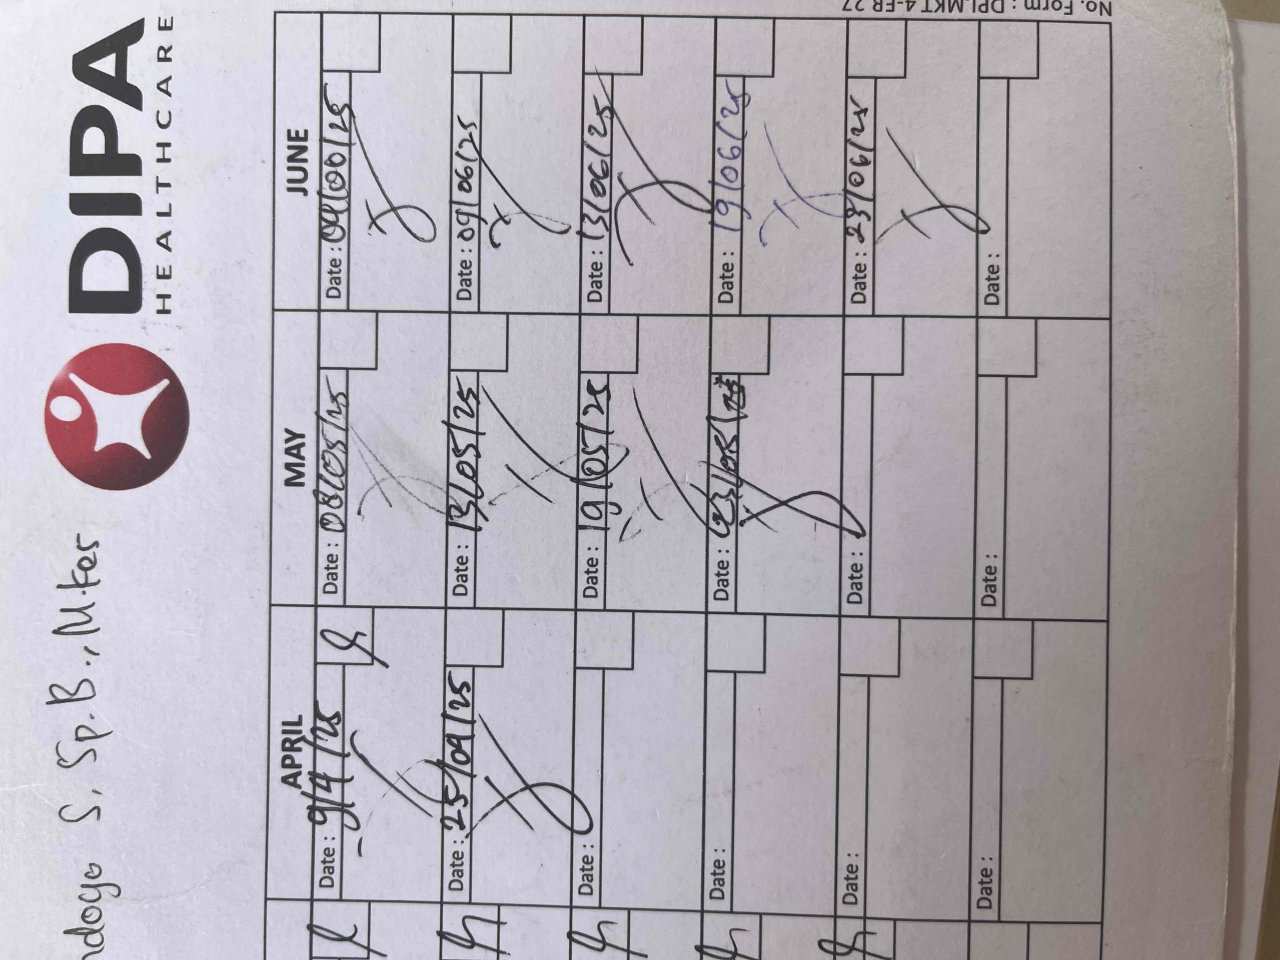 DIPA
HEALTHCARE
S, Sp.B., M.Kes
APRIL MAY JUNE
Date : 9/4/25 Date : 08/05/25 Date :
Date : 25/04/25 Date : 13/05/25 Date : 09/06/25
Date : Date : 19/05/25 Date : 13/06/25
Date : Date : 23/05/25 Date : 19/06/25
Date : Date : Date : 23/06/25
Date : Date : Date :
No. Form : DPI.MKT.4-FR.27